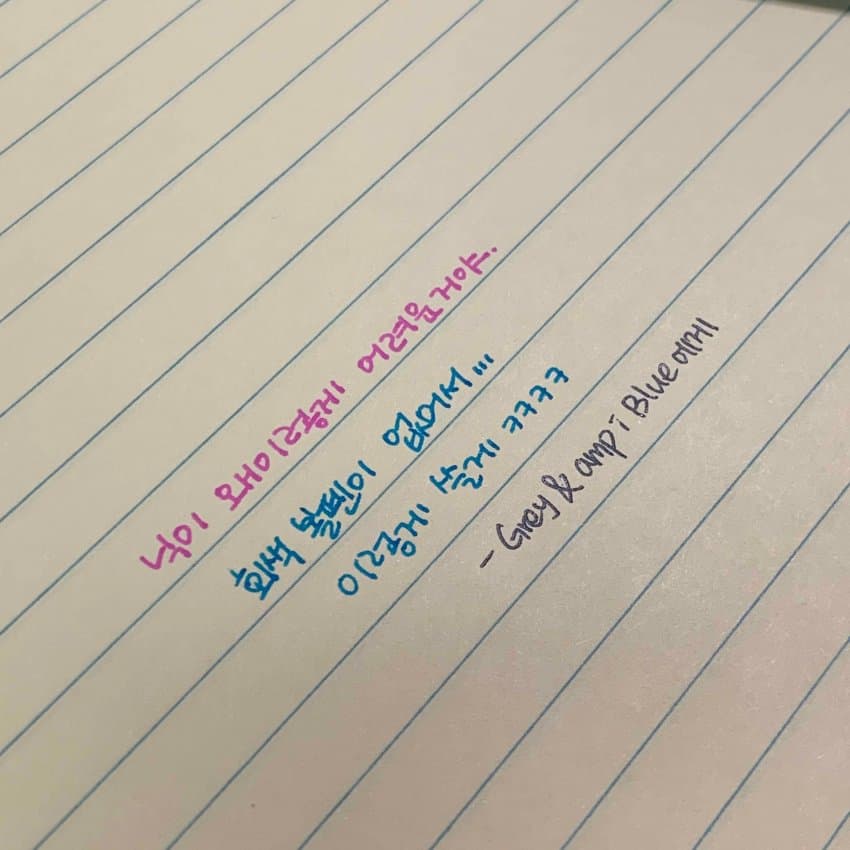 닉이 왜이렇게 어려운거야.
회색 볼펜이 없어서...
이렇게 쓸게 ㅋㅋㅋㅋ
- Grey & amp ; Blue 에게